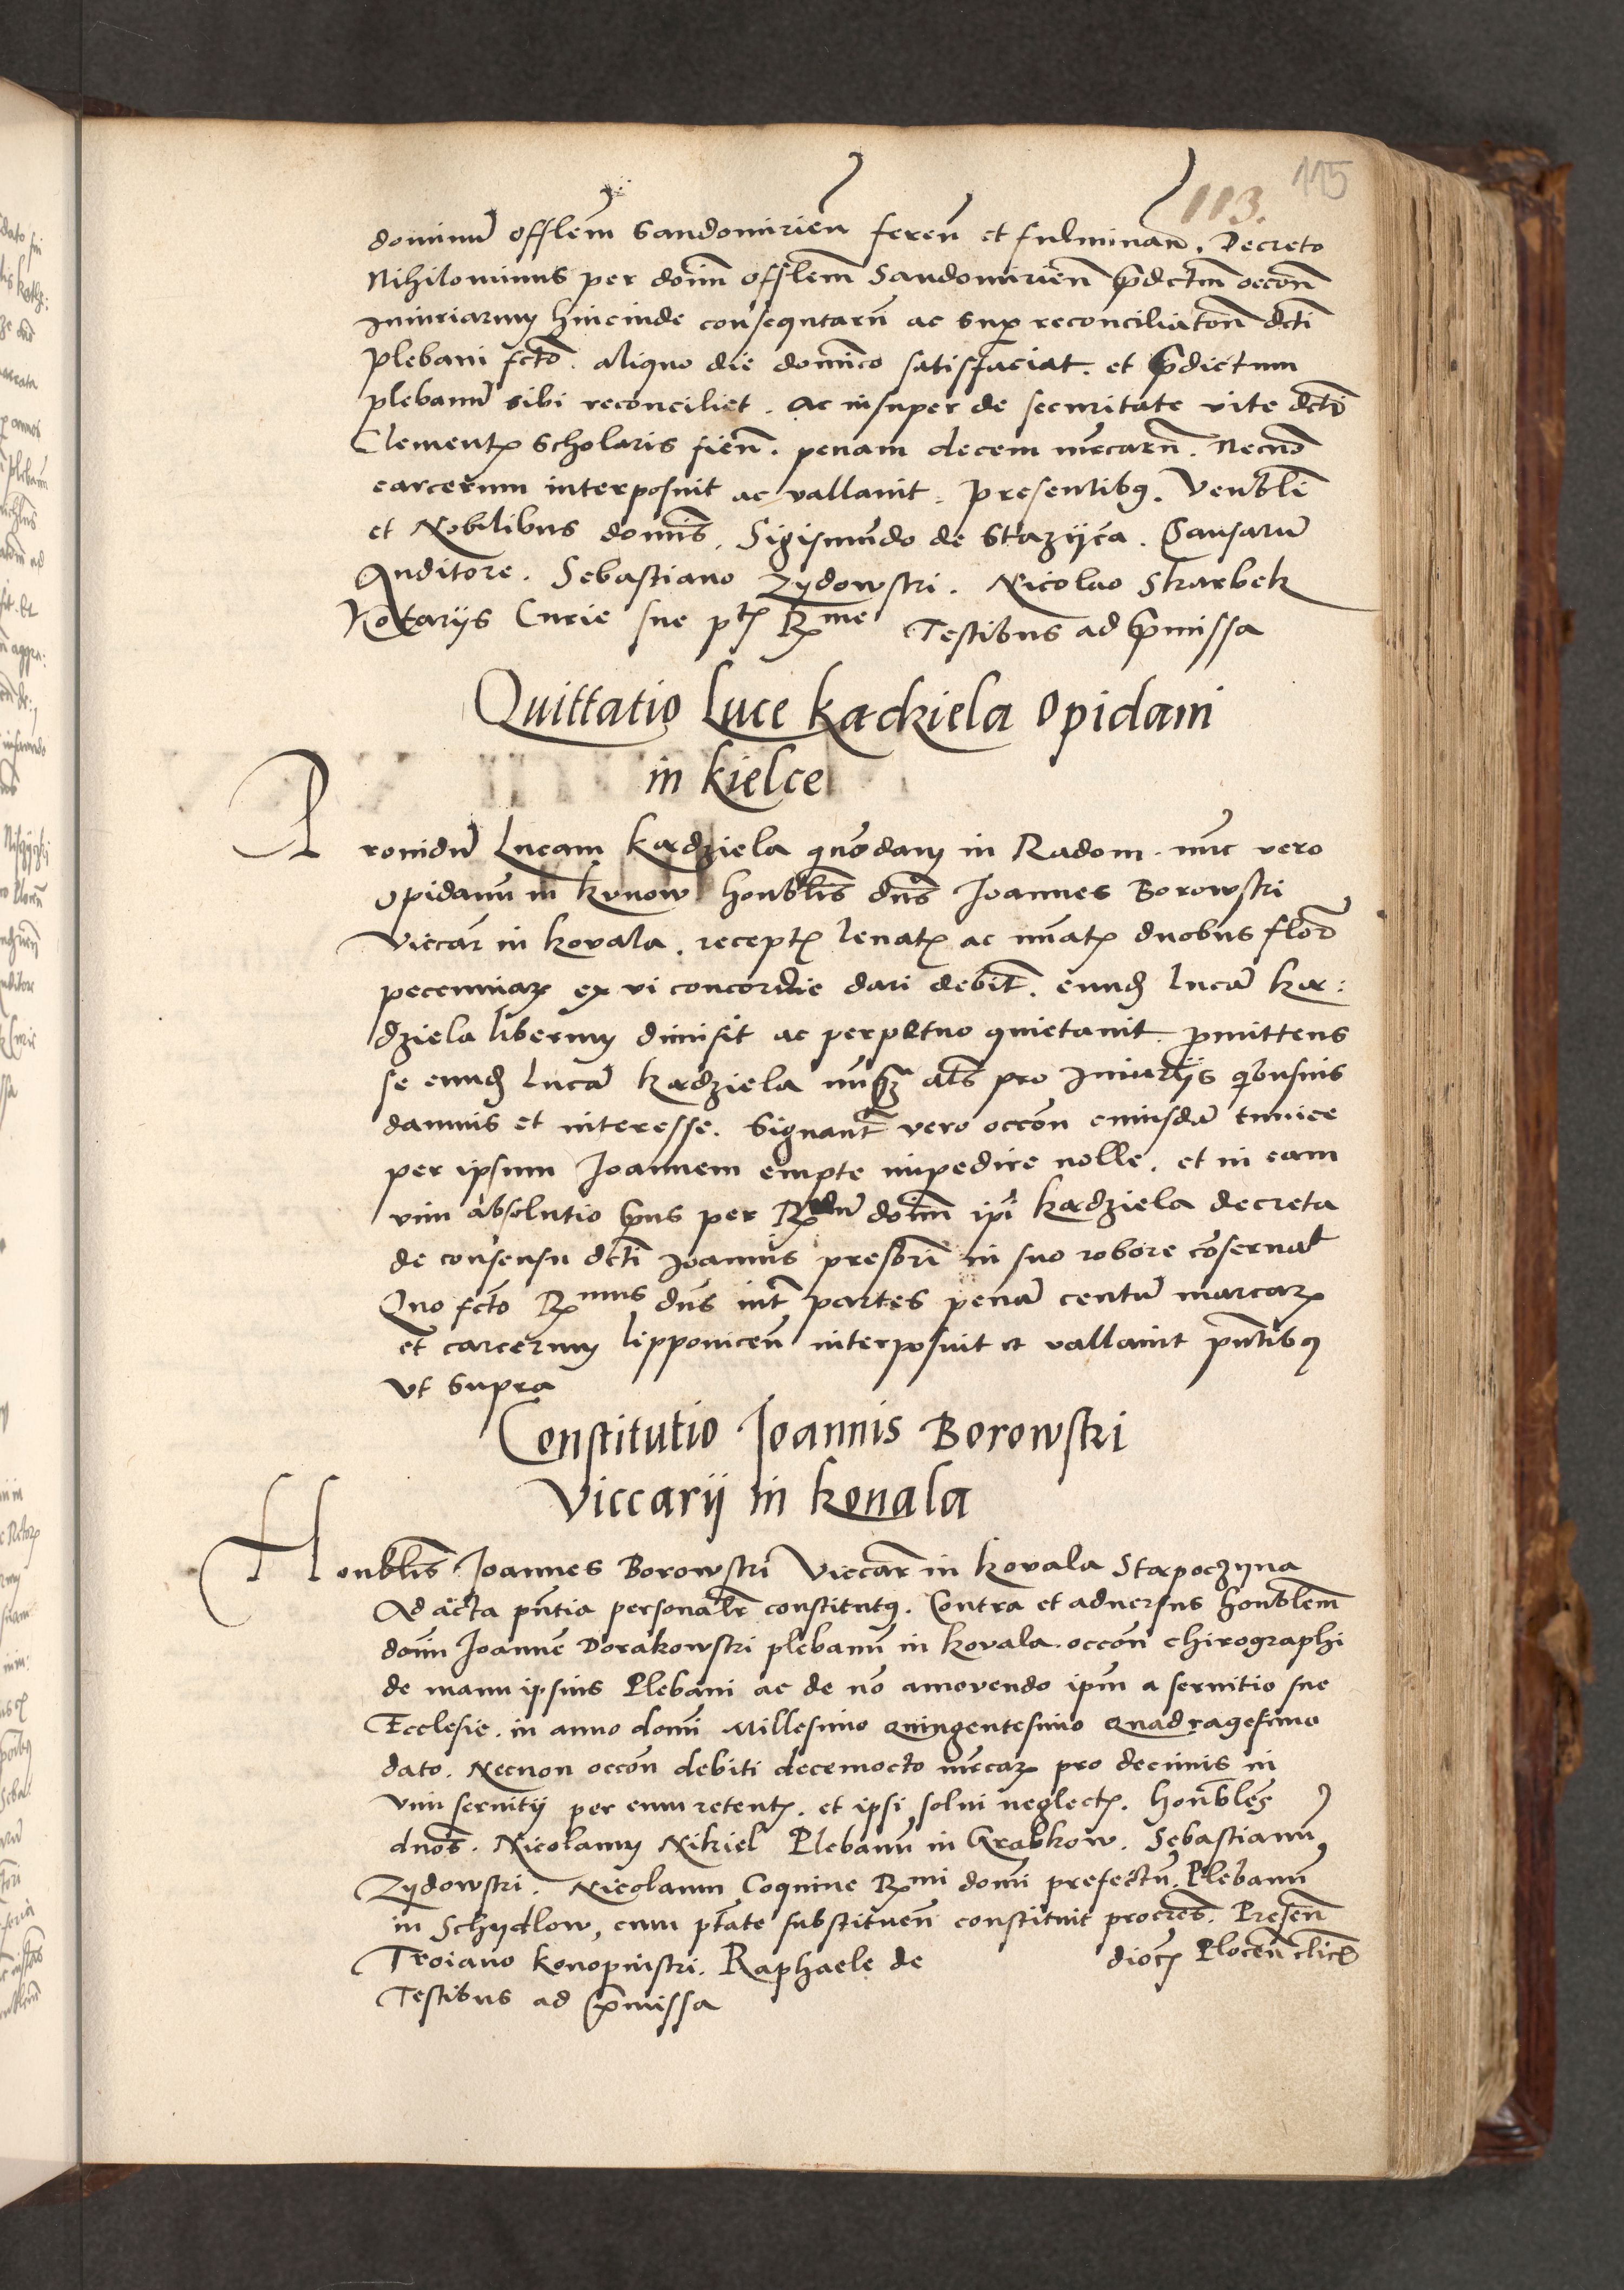 115
113.
dominū offlem̄ Sandomirien̄ feren̄ et fulminan̄. Decreto
Nihilominus per dom̄ offlem̄ Sandomirien̄ p̄dctm̄ occon̄
Iniuriarum hincinde consequtarū ac sup reconciliaton̄ dcti
plebani fcto. aliquo die dom̄ico satisfaciat. et p̄dictum
plebanū sibi reconciliet. Ac insuper de securitate vite dcti
Clementꝭ Scholaris fien̄. penam decem mrcarū. Necnō
carcerum interposuit ac vallauit. Presentibꝫ. Venbli
et Nobilibus domīs. Sigismundo de Stazijca. Causarū
Auditore. Sebastiano Zydowski. Nicolao Skarbek
Notarijs Curie sue ptꝭ Rme Testibus ad p̄missa
Quittatio Luce Kadziela Opidani
in Kielce
Prouidū Lucam Kadziela quondam in Radom. nūc vero
Opidanū in Kunow honblis dns̄ Joannes Borowski
Viccar̄ in Kovala. receptꝭ leuatꝭ ac nūatꝭ duobus flor̄
pecuniaꝝ ex vi concordie dari debit̄. eundꝫ lucā Ka:
dziela liberum dimisit ac perpetuo quietauit. promittens
se eundꝫ Lucā Kadziela nunqꝫ als̄ pro Iniurijs quibusuis
damnis et interesse. Signant̄ vero occon̄ cuiusdā tunice
per ipsum Joannem empte impedire nolle. et in eam
vim absolutio p̄ns per Rmdū dom̄ ipi Kadziela decreta
de consensu dcti Joannis presbri in suo robore cōseruat̄
Quo fcto Rmus dns̄ int̄ partes penā centū marcaꝝ
et carcerum lipponicen̄ interposuit et vallauit pn̄tibꝫ
vt supra
Constitutio Joannis Borowski
Viccarij in Kouala
Honblis Joannes Borowski Viccar̄ in Kovala Starpoczyna
Ad acta pn̄tia personalr̄ constitutꝫ. Contra et aduersus honblem
dom̄ Joannē Dorakowski plebanū in Kovala. occon̄ chirographi
de manu ipsius Plebani ac de nō amovendo ipm̄ a seruitio sue
Ecclesie. in anno domī Millesimo Quingentesimo Quadragesimo
dato. Necnon occon̄ debiti decemocto mrcaꝝ pro decimis in
vim seruitij per eum retentꝭ. et ipsi solui neglectꝭ. honbles
dnos. Nicolaum Nikiel Plebanū in Grabkow. Sebastianū
Zydowski. Nicolaum Coquine Rmi domī prefectū. Plebanū
in Schydlow, cum ptāte substituen̄ constituit procres. Presen̄
Troiano Konopniski. Raphaele de diocꝭ Plocen̄ clicꝭ
Testibus ad p̄missa